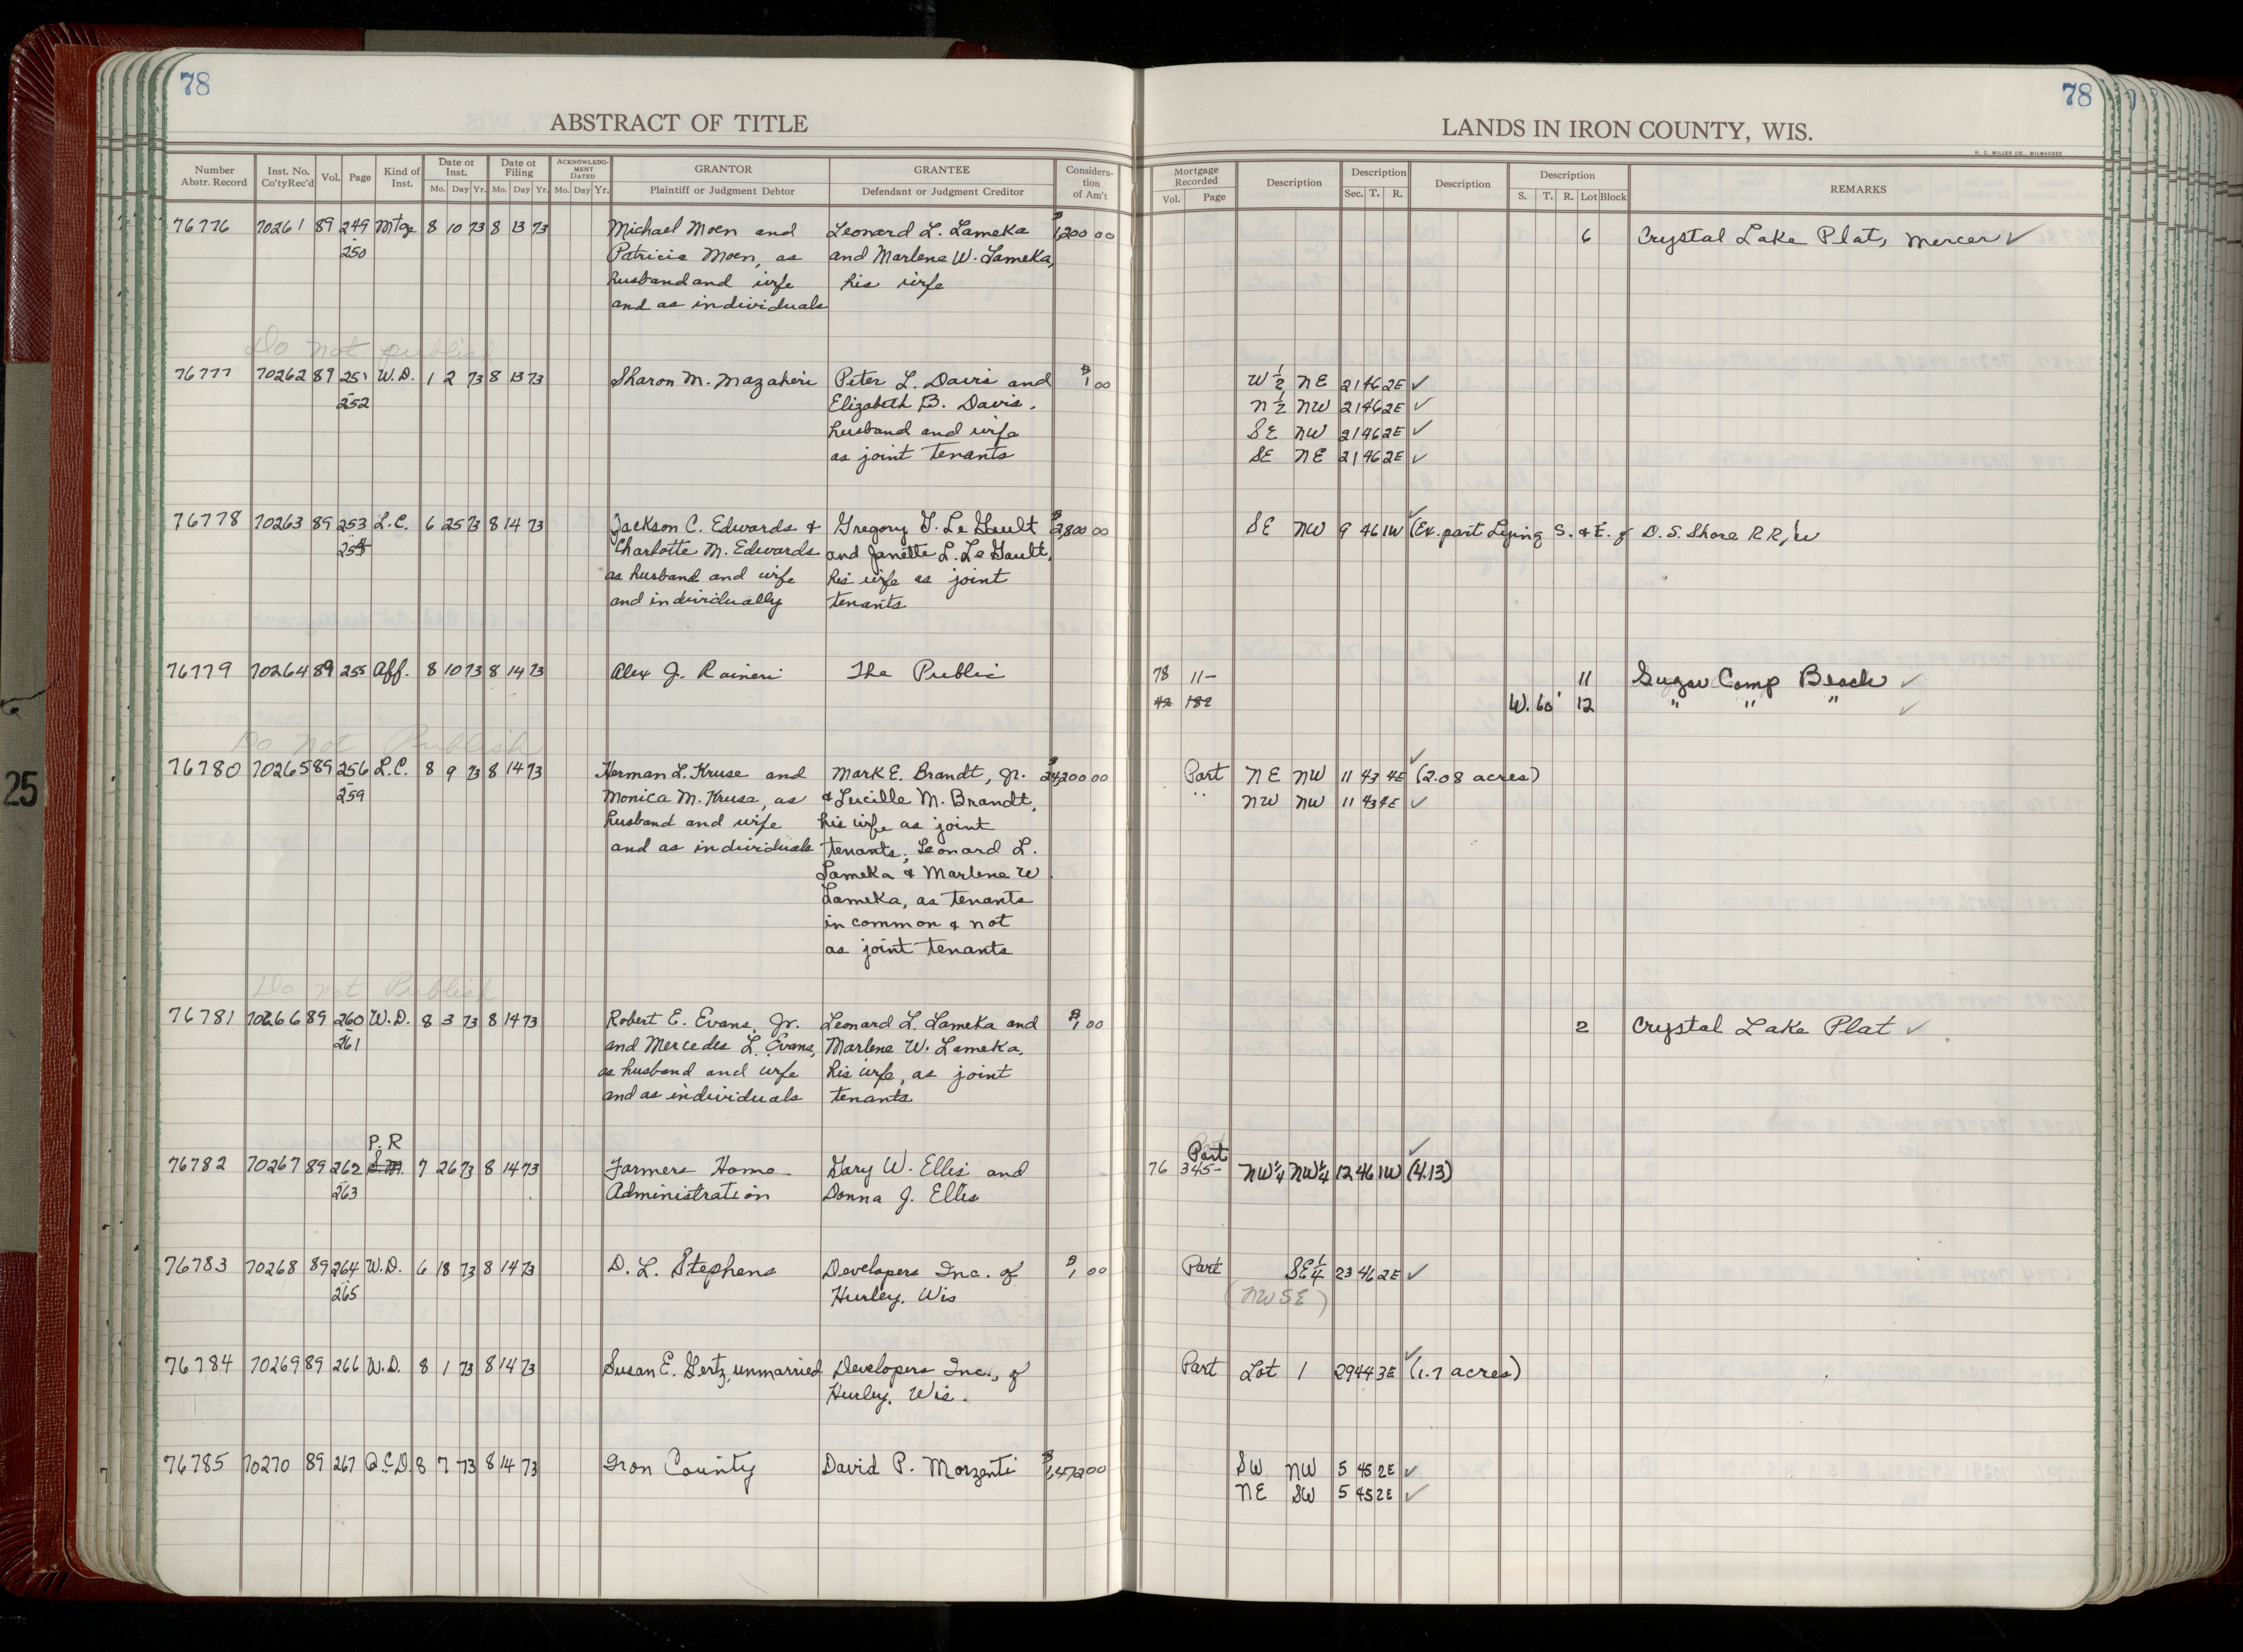 78
ABSTRACT OF TITLE
Number Abstr. Record | Inst. No. Co'tyRec'd | Vol. | Page | Kind of Inst. | Date of Inst. Mo. Day Yr. | Date of Filing Mo. Day Yr. | ACKNOWLEDGMENT DATED Mo. Day Yr. | GRANTOR Plaintiff or Judgment Debtor | GRANTEE Defendant or Judgment Creditor | Consideration of Am't
78
LANDS IN IRON COUNTY, WIS.
H. C. MILLER CO., MILWAUKEE
Mortgage Recorded Vol. Page | Description | Description Sec. T. R. | Description | Description S. T. R. Lot Block | REMARKS
76776 70261 89 249 Mtge 8 10 73 8 13 73 Michael Moen and Leonard L. Lameka $1,200 00 6 Crystal Lake Plat, Mercer ✓
250 Patricia Moen, as and Marlene W. Lameka,
husband and wife his wife
and as individuals
Do not publish
76777 70262 89 251 W.D. 1 2 73 8 13 73 Sharon M. Mazaheri Peter L. Davis and $1 00 W 1/2 NE 21 46 2E ✓
252 Elizabeth B. Davis, N 1/2 NW 21 46 2E ✓
husband and wife SE NW 21 46 2E ✓
as joint tenants SE NE 21 46 2E ✓
76778 70263 89 253 L.C. 6 25 73 8 14 73 Jackson C. Edwards & Gregory J. Le Gault $2,800 00 SE NW 9 46 1W ✓ (Ex. part Lying S. & E. of D.S. Shore RR/W
254 Charlotte M. Edwards and Janette L. Le Gault,
as husband and wife his wife as joint
and individually tenants
76779 70264 89 255 Aff. 8 10 73 8 14 73 Alex J. Raineri The Public 78 11- 11 Sugar Camp Beach ✓
42 182 W. 60' 12 " " " ✓
Do not Publish
76780 70265 89 256 L.C. 8 9 73 8 14 73 Herman L. Kruse and Mark E. Brandt, Jr. $24,200 00 Part NE NW 11 43 4E ✓ (2.08 acres)
259 Monica M. Kruse, as & Lucille M. Brandt, " NW NW 11 43 4E ✓
husband and wife his wife as joint
and as individuals tenants; Leonard L.
Lameka & Marlene W.
Lameka, as tenants
in common & not
as joint tenants
Do not Publish
76781 70266 89 260 W.D. 8 3 73 8 14 73 Robert E. Evans, Jr. Leonard L. Lameka and $1 00 2 Crystal Lake Plat ✓
261 and Mercedes L. Evans, Marlene W. Lameka,
as husband and wife his wife, as joint
and as individuals tenants
P. R Part
76782 70267 89 262 S.M. 7 26 73 8 14 73 Farmers Home Gary W. Ellis and 76 345- NW¼ NW¼ 12 46 1W ✓ (4.13)
263 Administration Donna J. Ellis
76783 70268 89 264 W.D. 6 18 73 8 14 73 D. L. Stephens Developers Inc. of $1 00 Part SE 1/4 23 46 2E ✓
265 Hurley, Wis (NW SE)
76784 70269 89 266 W.D. 8 1 73 8 14 73 Susan E. Gertz, unmarried Developers Inc., of Part Lot 1 29 44 3E ✓ (1.7 acres)
Hurley, Wis.
76785 70270 89 267 Q.C.D. 8 7 73 8 14 73 Iron County David P. Morzenti $1,472 00 SW NW 5 45 2E ✓
NE SW 5 45 2E ✓
25